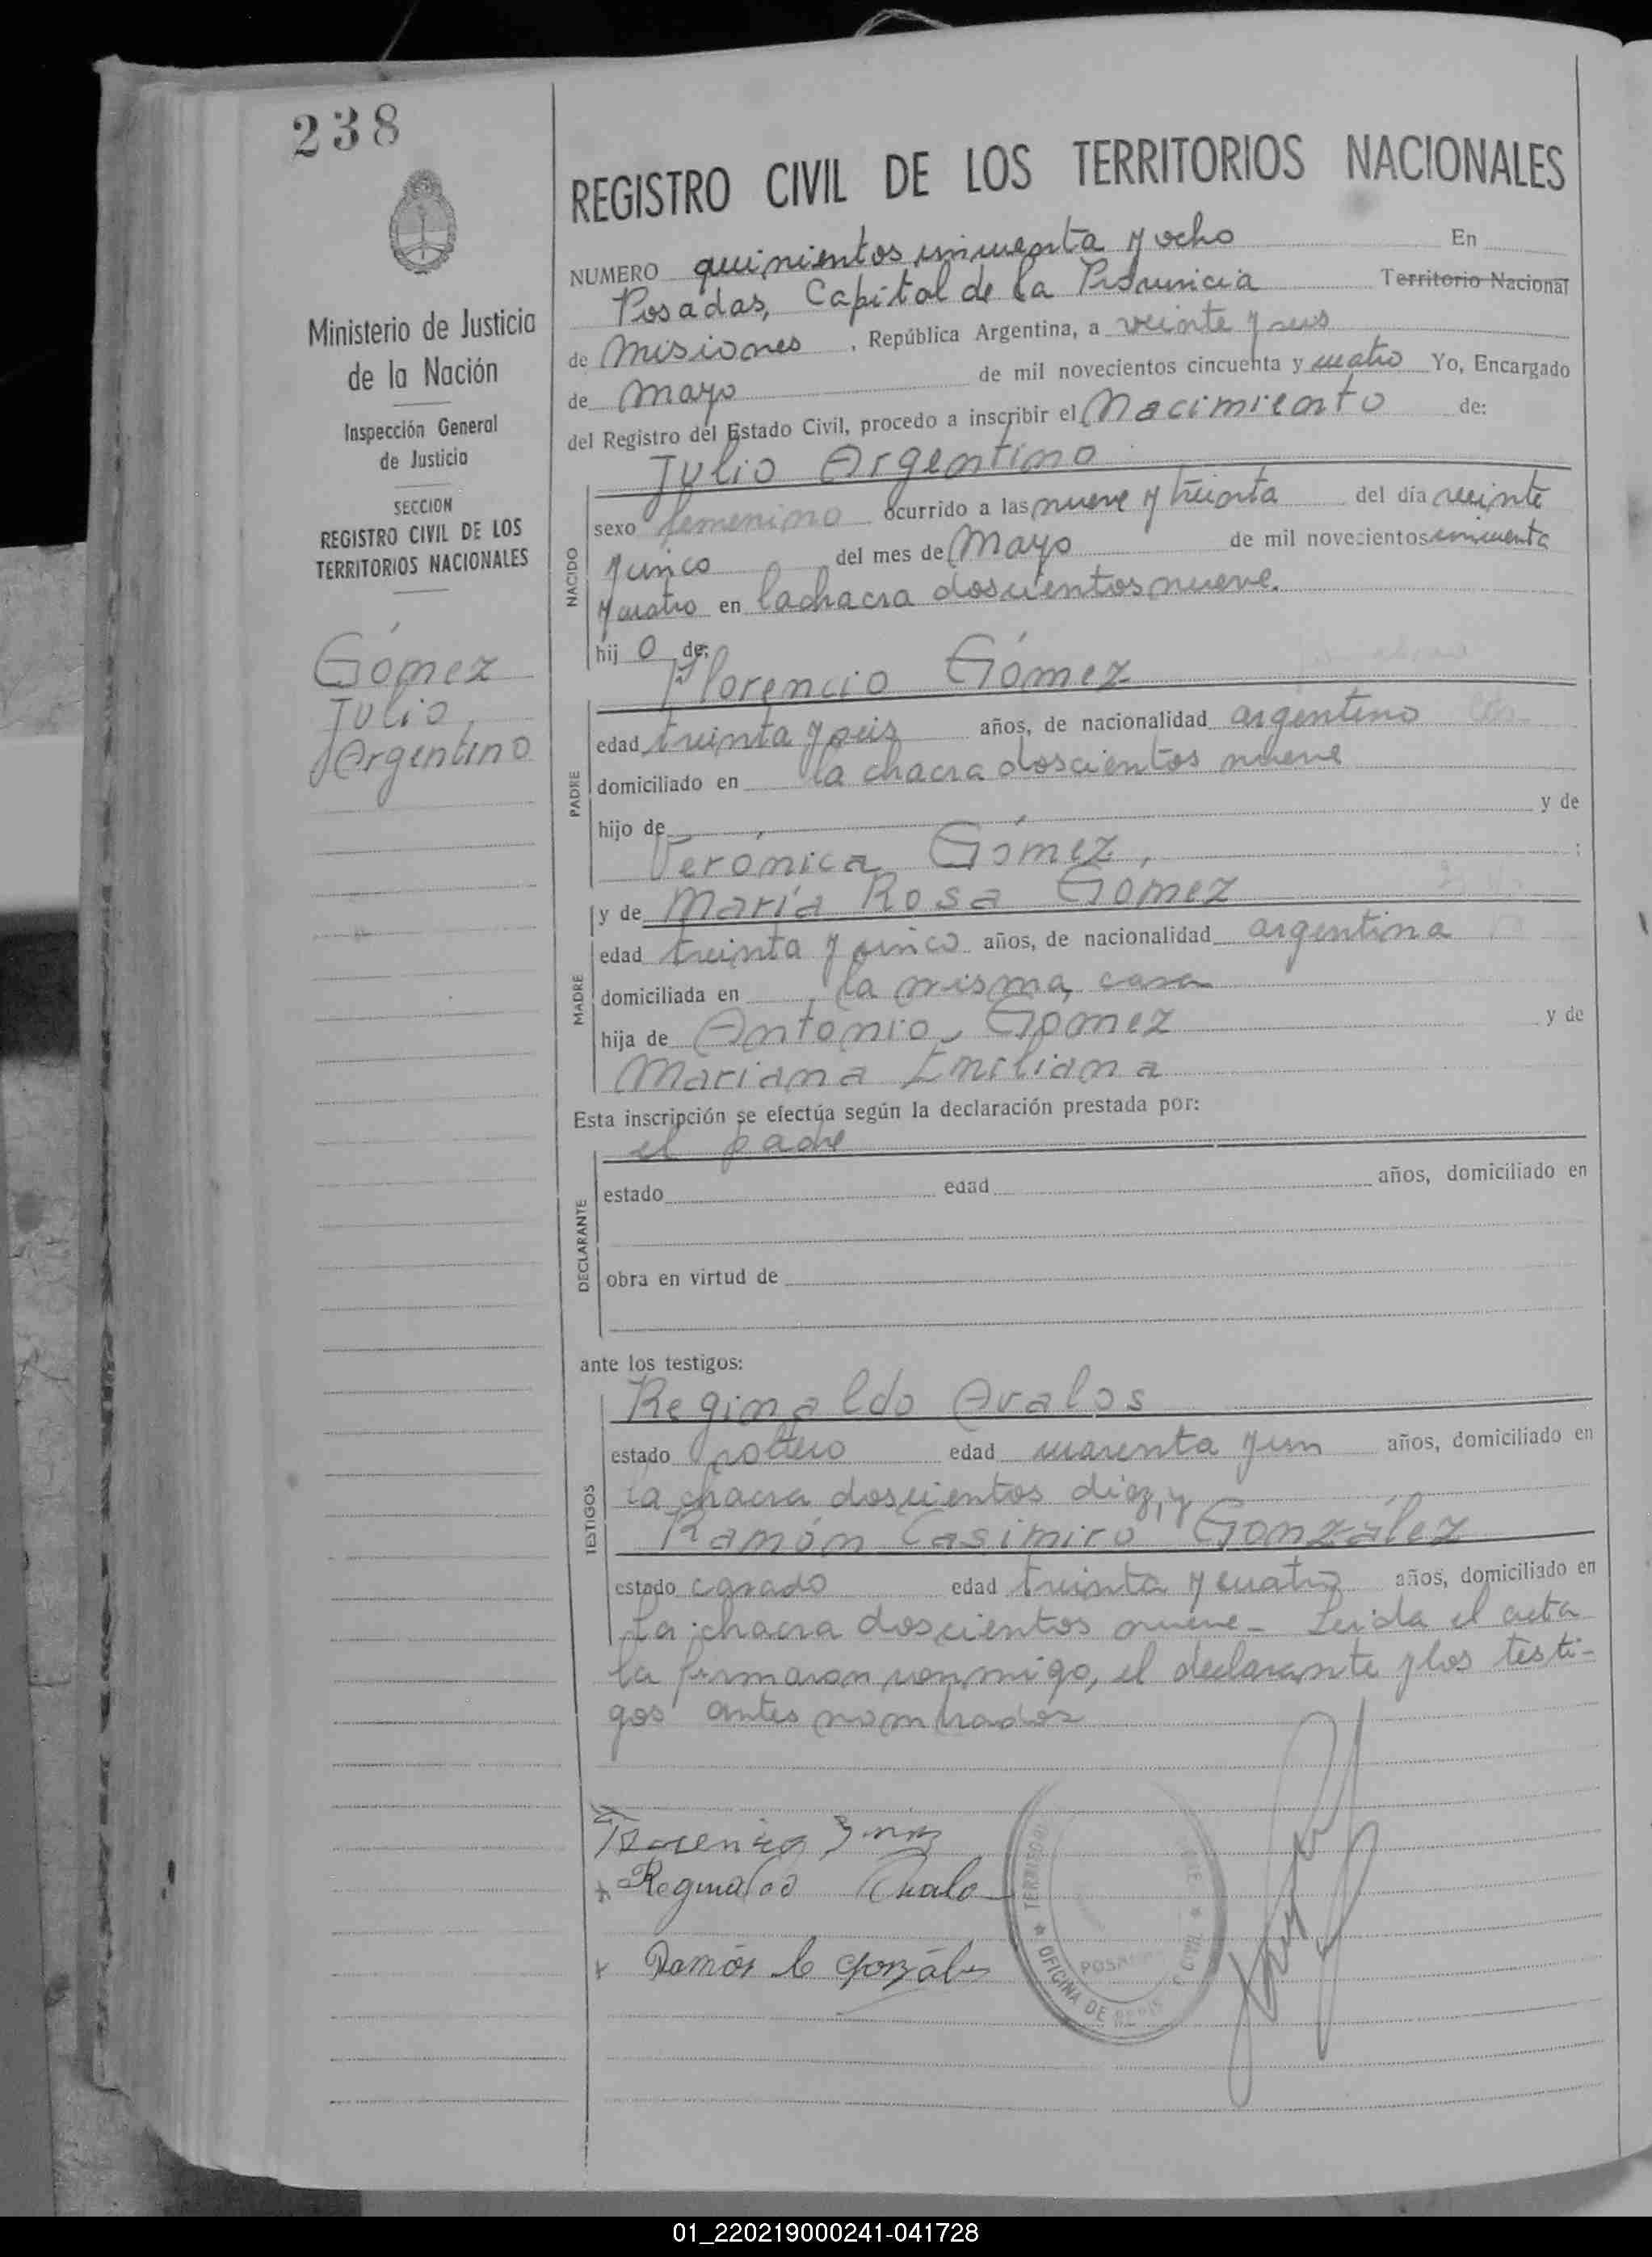 238
Ministerio de Justicia
de la Nación
Inspección General
de Justicia
SECCION
REGISTRO CIVIL DE LOS
TERRITORIOS NACIONALES
Gómez
Julio
Argentino
REGISTRO CIVIL DE LOS TERRITORIOS NACIONALES
NUMERO quinientos cincuenta y ocho En
Posadas, Capital de la Provincia Territorio Nacional
de Misiones, República Argentina, a veinte y seis
de Mayo de mil novecientos cincuenta y cuatro Yo, Encargado
del Registro del Estado Civil, procedo a inscribir el Nacimiento de:
Julio Argentino
NACIDO
sexo femenino ocurrido a las nueve y treinta del día veinte
y cinco del mes de Mayo de mil novecientos cincuenta
y cuatro en la chacra doscientos nueve.
hijo de:
Florencio Gómez
PADRE
edad treinta y seis años, de nacionalidad argentino
domiciliado en la chacra doscientos nueve
hijo de y de
Verónica Gómez, ;
MADRE
y de María Rosa Gomez
edad treinta y cinco años, de nacionalidad argentina
domiciliada en la misma casa
hija de Antonio Gomez y de
Mariana Emiliana
Esta inscripción se efectúa según la declaración prestada por:
el padre
DECLARANTE
estado edad años, domiciliado en
obra en virtud de
ante los testigos:
Reginaldo Avalos
TESTIGOS
estado soltero edad cuarenta y un años, domiciliado en
la chacra doscientos diez, y
Ramón Casimiro González
estado casado edad treinta y cuatro años, domiciliado en
la chacra doscientos nueve - Leida el acta
la firmaron conmigo, el declarante y los testi-
gos antes nombrados
Reginaldo Avalo
Ramón C González
OFICINA DE
POSADAS
01_220219000241-041728